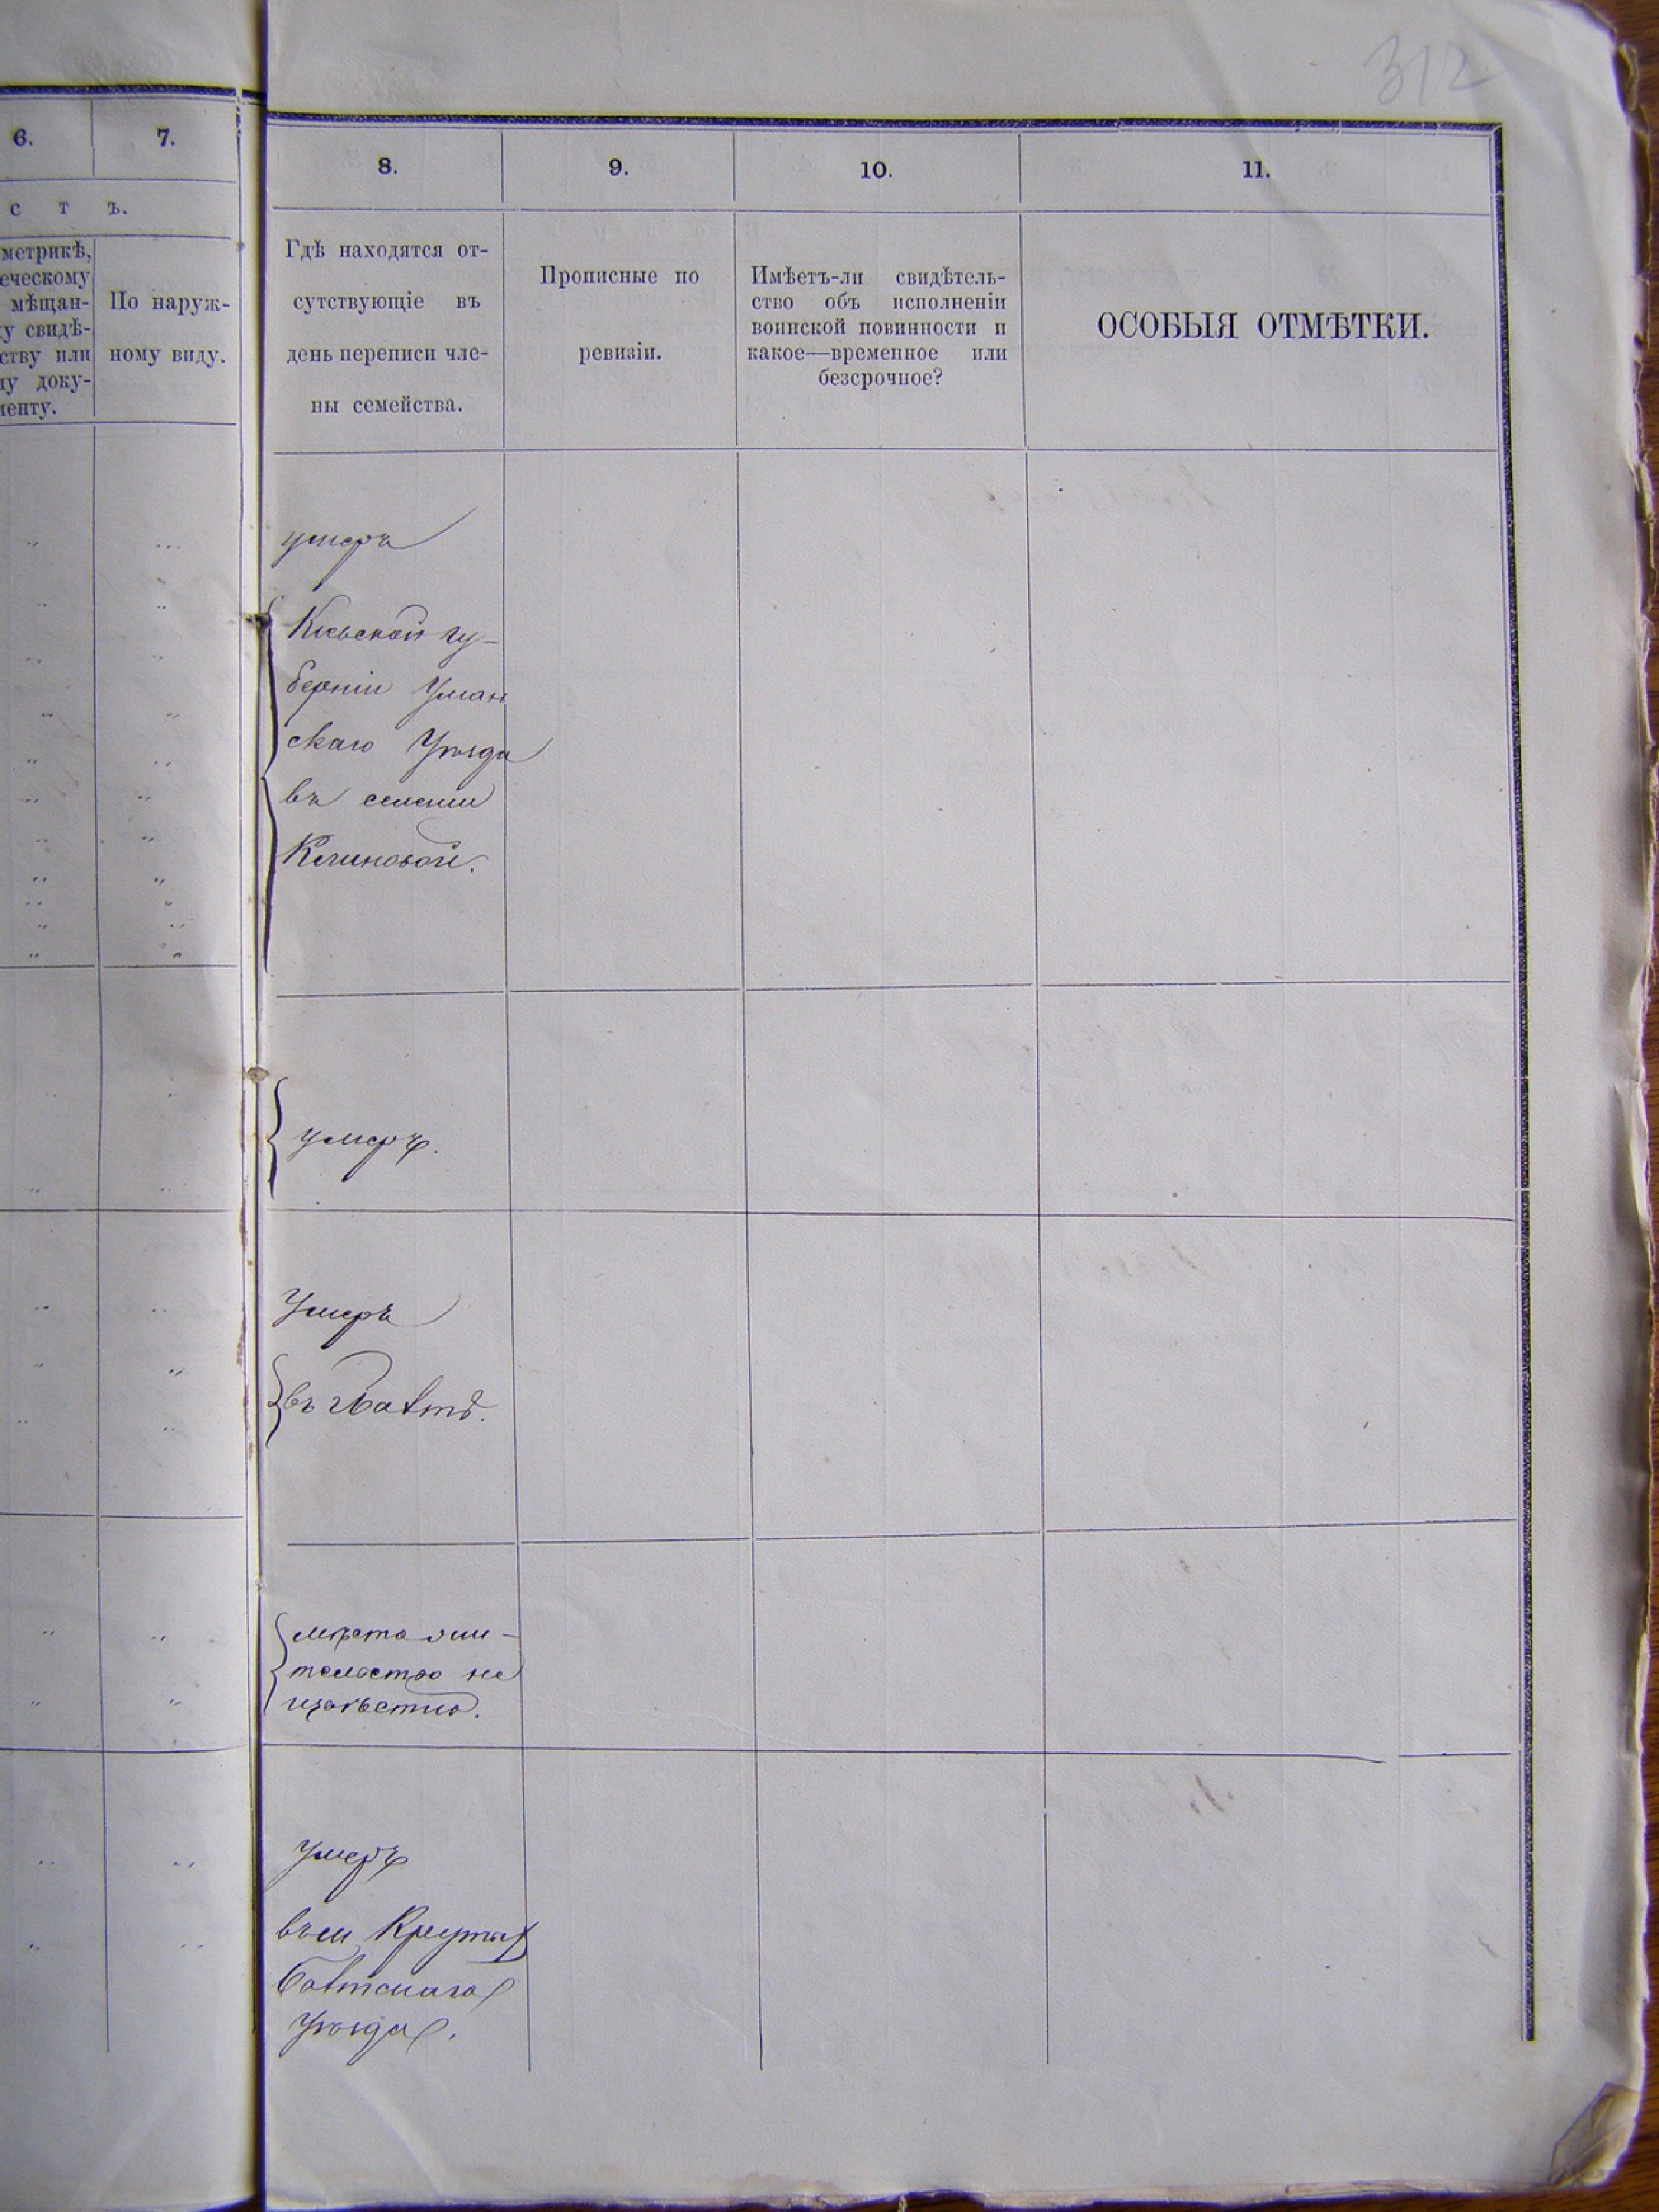 312
6.
7.
с т ъ.
метрикѣ,
еческому
мѣщан-
у свидѣ-
ству или
у доку-
менту.
По наруж-
ному виду.
8.
9.
10.
11.
Гдѣ находятся от-
сутствующіе въ
день переписи чле-
ны семейства.
Прописные по
ревизіи.
Имѣетъ-ли свидѣтель-
ство объ исполненіи
воинской повинности и
какое—временное или
безсрочное?
ОСОБЫЯ ОТМѢТКИ.
умеръ
Кіевской гу-
берніи Уман
скаго Уѣзда
въ селеніи
умеръ.
Умеръ
въ Балтѣ.
мѣсто жи-
тельство не
извѣстно.
Умеръ
Балтскаго
Уѣзда.